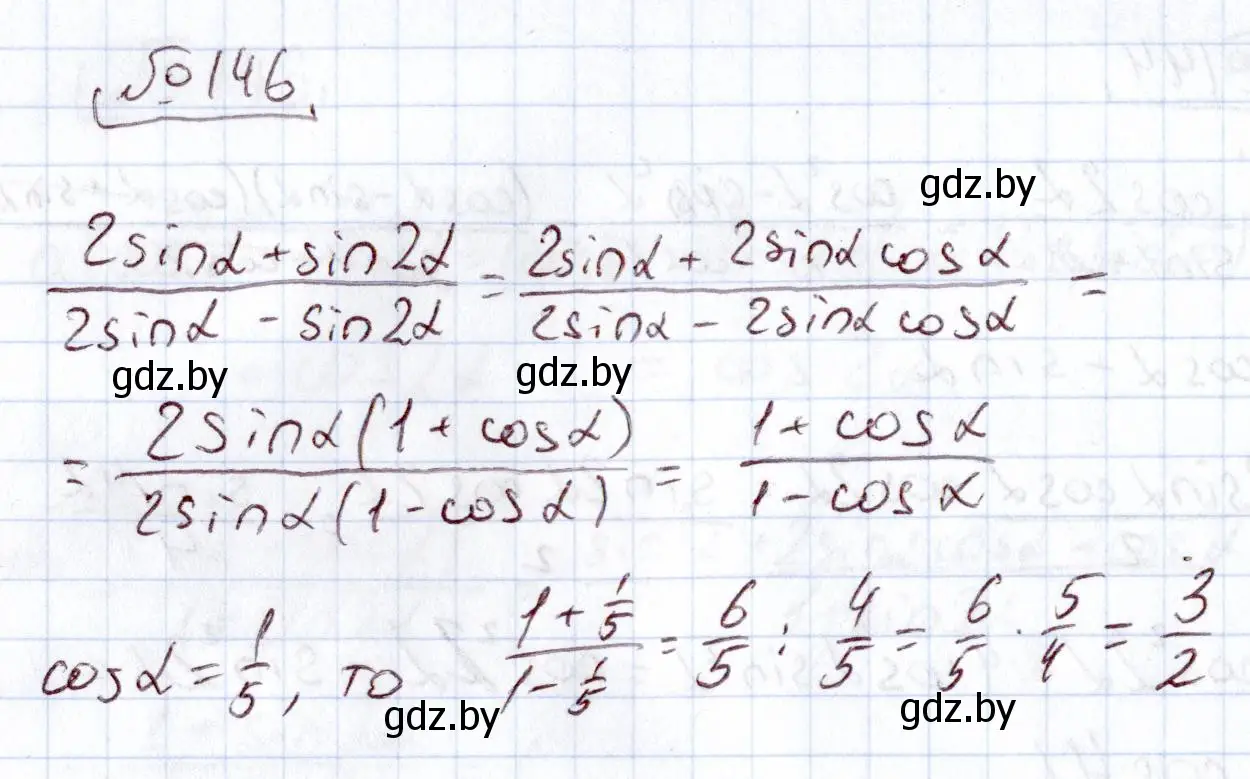 № 146
gdz.by
(2sinα + sin2α)/(2sinα - sin2α) = (2sinα + 2sinα cosα)/(2sinα - 2sinα cosα) =
gdz.by gdz.by
= (2sinα(1 + cosα))/(2sinα(1 - cosα)) = (1 + cosα)/(1 - cosα)
cosα = 1/5, то (1 + 1/5)/(1 - 1/5) = 6/5 : 4/5 = 6/5 · 5/4 = 3/2
gdz.by gdz.by